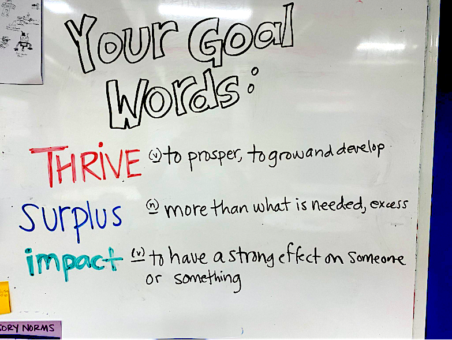 Your Goal
Words:
THRIVE (v) to prosper, to grow and develop
Surplus (n) more than what is needed, excess
impact (v) to have a strong effect on someone
or something
ORY NORMS